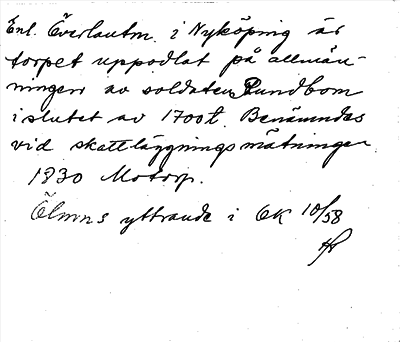 Enl. Överlantm. i Nyköping är
torpet uppodlat på allmän-
ningen av soldaten Rundbom
i slutet av 1700t. Benämndes
vid skattläggningsmätningen
1830 Motorp.
Ölmns yttrande i CK 10/58